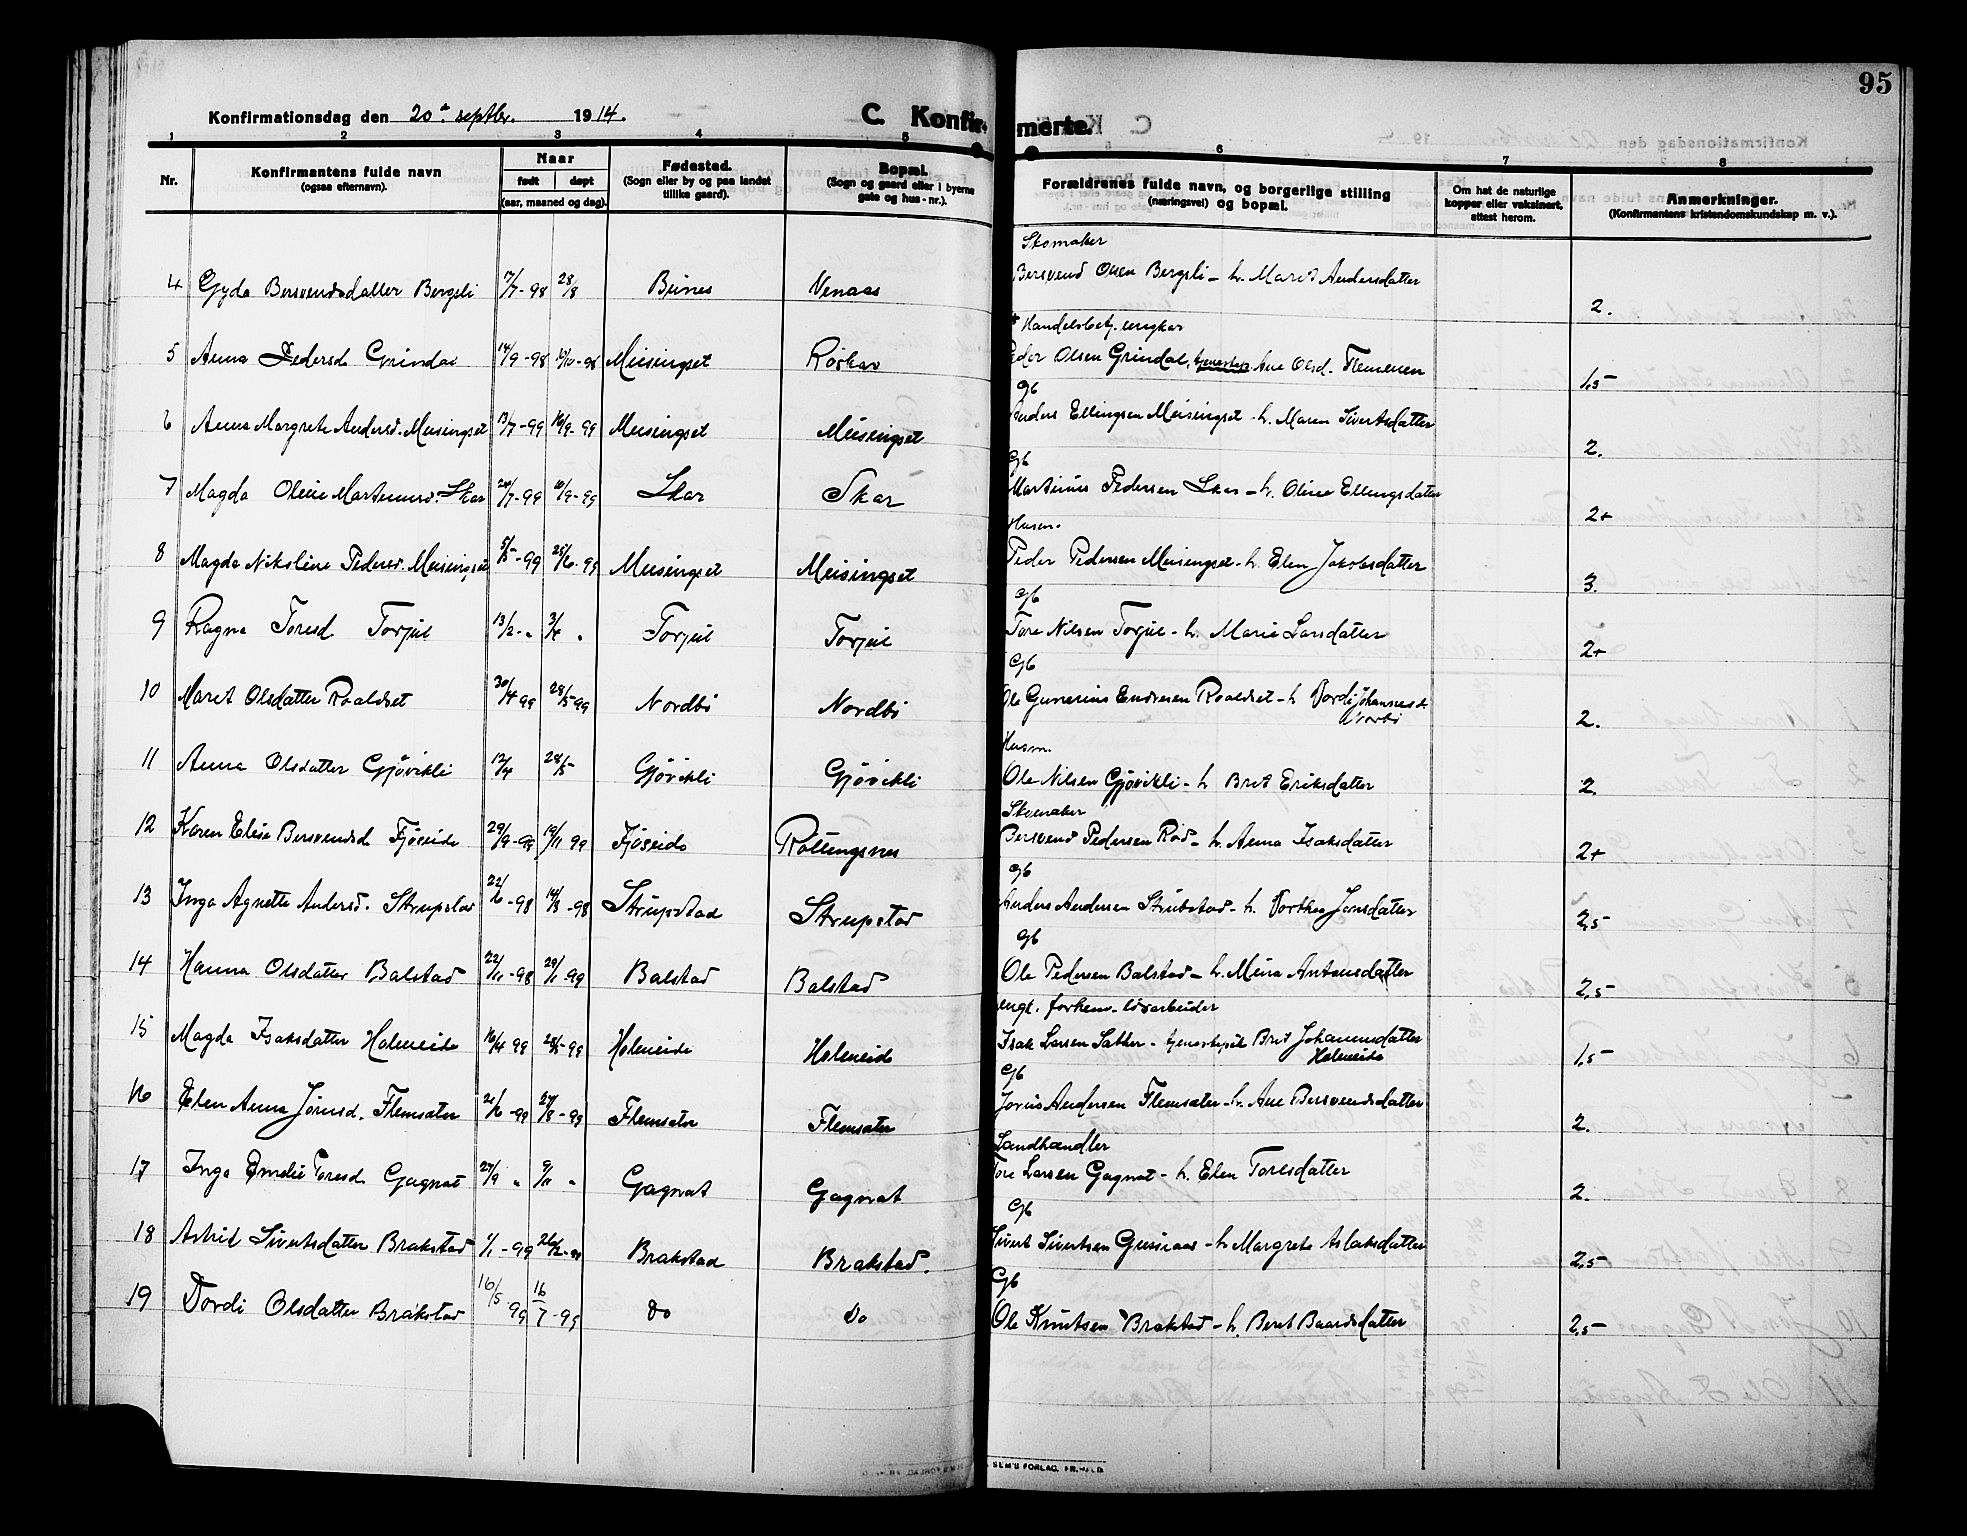 95
Konfirmationsdag den 20de septbr. 1914. C. Konfirmerte.
1 2 3 4 5 6 7 8
Nr. Konfirmantens fulde navn (ogsaa efternavn). Naar født døpt (aar, maaned og dag). Fødested. (Sogn eller by og paa landet tillike gaard). Bopæl. (Sogn og gaard eller i byerne gate og hus-nr.). Forældrenes fulde navn, og borgerlige stilling (næringsvei) og bopæl. Om hat de naturlige kopper eller vaksinert, attest herom. Anmerkninger. (Konfirmantens kristendomskundskap m. v.).
Skomaker
4 Gyda Bersvendsdatter Bergsli 7/7-98 28/8 Beines Venaas Bersvend Olsen Bergsli - h. Maret Andersdatter 2.
Handelsbetj. ungkar
5 Anna Pedersd Grindal 14/9-98 Meisingset Røskar Peder Olsen Grindal, Ane Olsd. Flemmen 1,5
Gb
6 Anna Margrete Andersd. Meisingset 13/7-99 10/9-99 Meisingset Meisingset Anders Ellingsen Meisingset - h. Maren Sivertsdatter 2.
Gb
7 Magda Oline Martinusd. Skar 24/7-99 10/9-99 Skar Skar Martinus Pedersen Skar - h. Oline Ellingsdatter 2+
Husm.
8 Magda Nikoline Pedersd. Meisingset 5/5-99 25/6-99 Meisingset Meisingset Peder Pedersen Meisingset - h. Elen Jakobsdatter 3.
Gb
9 Ragna Toresd Torjul 13/2-" 3/4 " Torjul Torjul Tore Nilsen Torjul - h. Marie Larsdatter 2+
Gb
10 Maret Olsdatter Roaldset 30/4 99 28/5-99 Nordbø Nordbø Ole Gunerius Endresen Roaldset - h Dordi Johannesd.
Norbø 2.
Husm.
11 Anna Olsdatter Gjøvikli 12/4 28/5 Gjøvikli Gjøvikli Ole Nilsen Gjøvikli - h Bret Eriksdatter 2.
Skomaker
12 Karen Elise Bersvendsd Fjøseide 29/9-99 19/11 99 Fjøseide Røttingsnes Bersvend Pedersen Rød - h. Anna Isaksdatter 2+
Gb
13 Inga Agnette Andersd. Strupstad 22/6-98 14/8-98 Strupstad Strupstad Anders Andersen Strubstad - h. Dorthea Jonsdatter 2,5
Gb
14 Hanna Olsdatter Balstad 22/11-98 29/1-99 Balstad Balstad Ole Pedersen Balstad - h. Mina Antonsdatter 2,5
ungk. forhen. løsarbeider
15 Magda Isaksdatter Holmeide 16/4 99 28/5-99 Holmeide Holmeide Isak Larsen Sæther - tjenestepik Bret Johannesdatter
Holmeide 1,5
Gb
16 Elen Anna Jørnsd. Flemsæter 21/6-99 27/8-99 Flemsæter Flemsæter Andersen Flemsæter - h. Ane Bersvendsdatter 2.
Landhandler
17 Inga Emelie Toresd Gagnat 27/9 " 9/11 " Gagnat Gagnat Tore Larsen Gagnat - h. Elen Toresdatter 2.
Gb
18 Astrid Sivertsdatter Brakstad 1/1-99 26/2-99 Brakstad Brakstad. Sivert Sivertsen - h Margrete Aslaksdatter 2,5
Gb
19 Dordi Olsdatter Brakstad 16/5 99 16/7-99 Do Do Ole Knutsen Brakstad - h. Beret Baardsdatter 2,5
SEM'S FORLAG, FR.HALD.